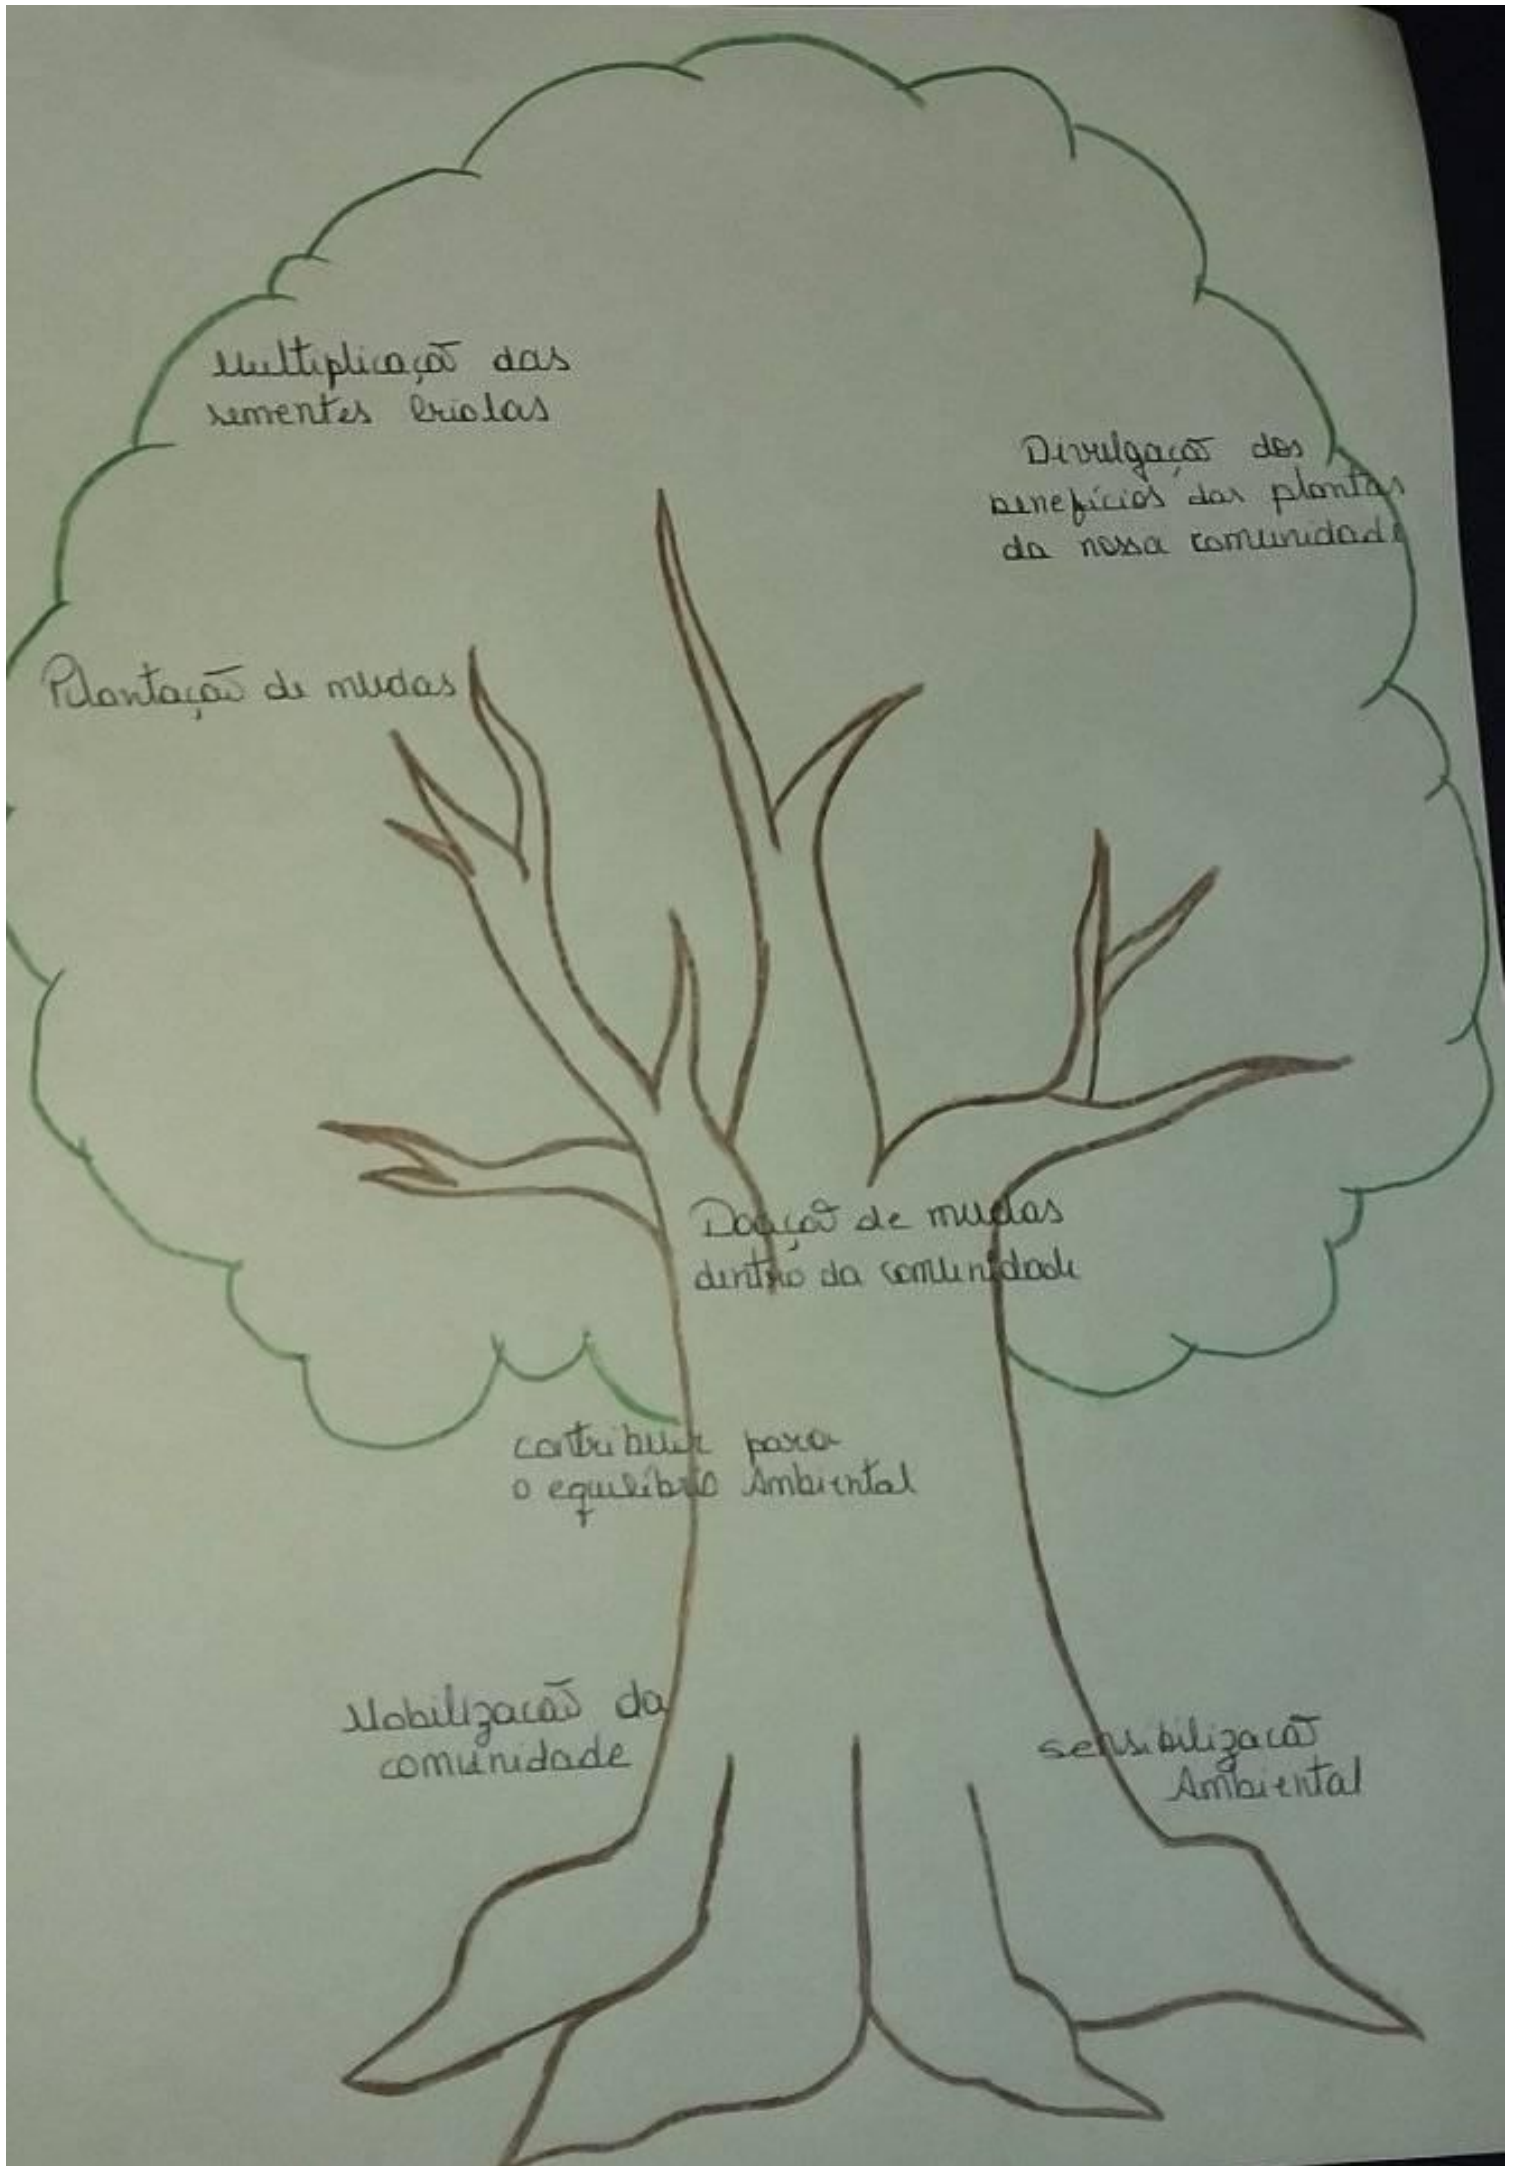 Multiplicação das
sementes Criolas
Divulgação dos
benefícios das plantas
da nossa comunidade
Plantação de mudas
Doação de mudas
dentro da comunidade
contribuir para
o equilíbrio Ambiental
Mobilização da
comunidade
sensibilização
Ambiental